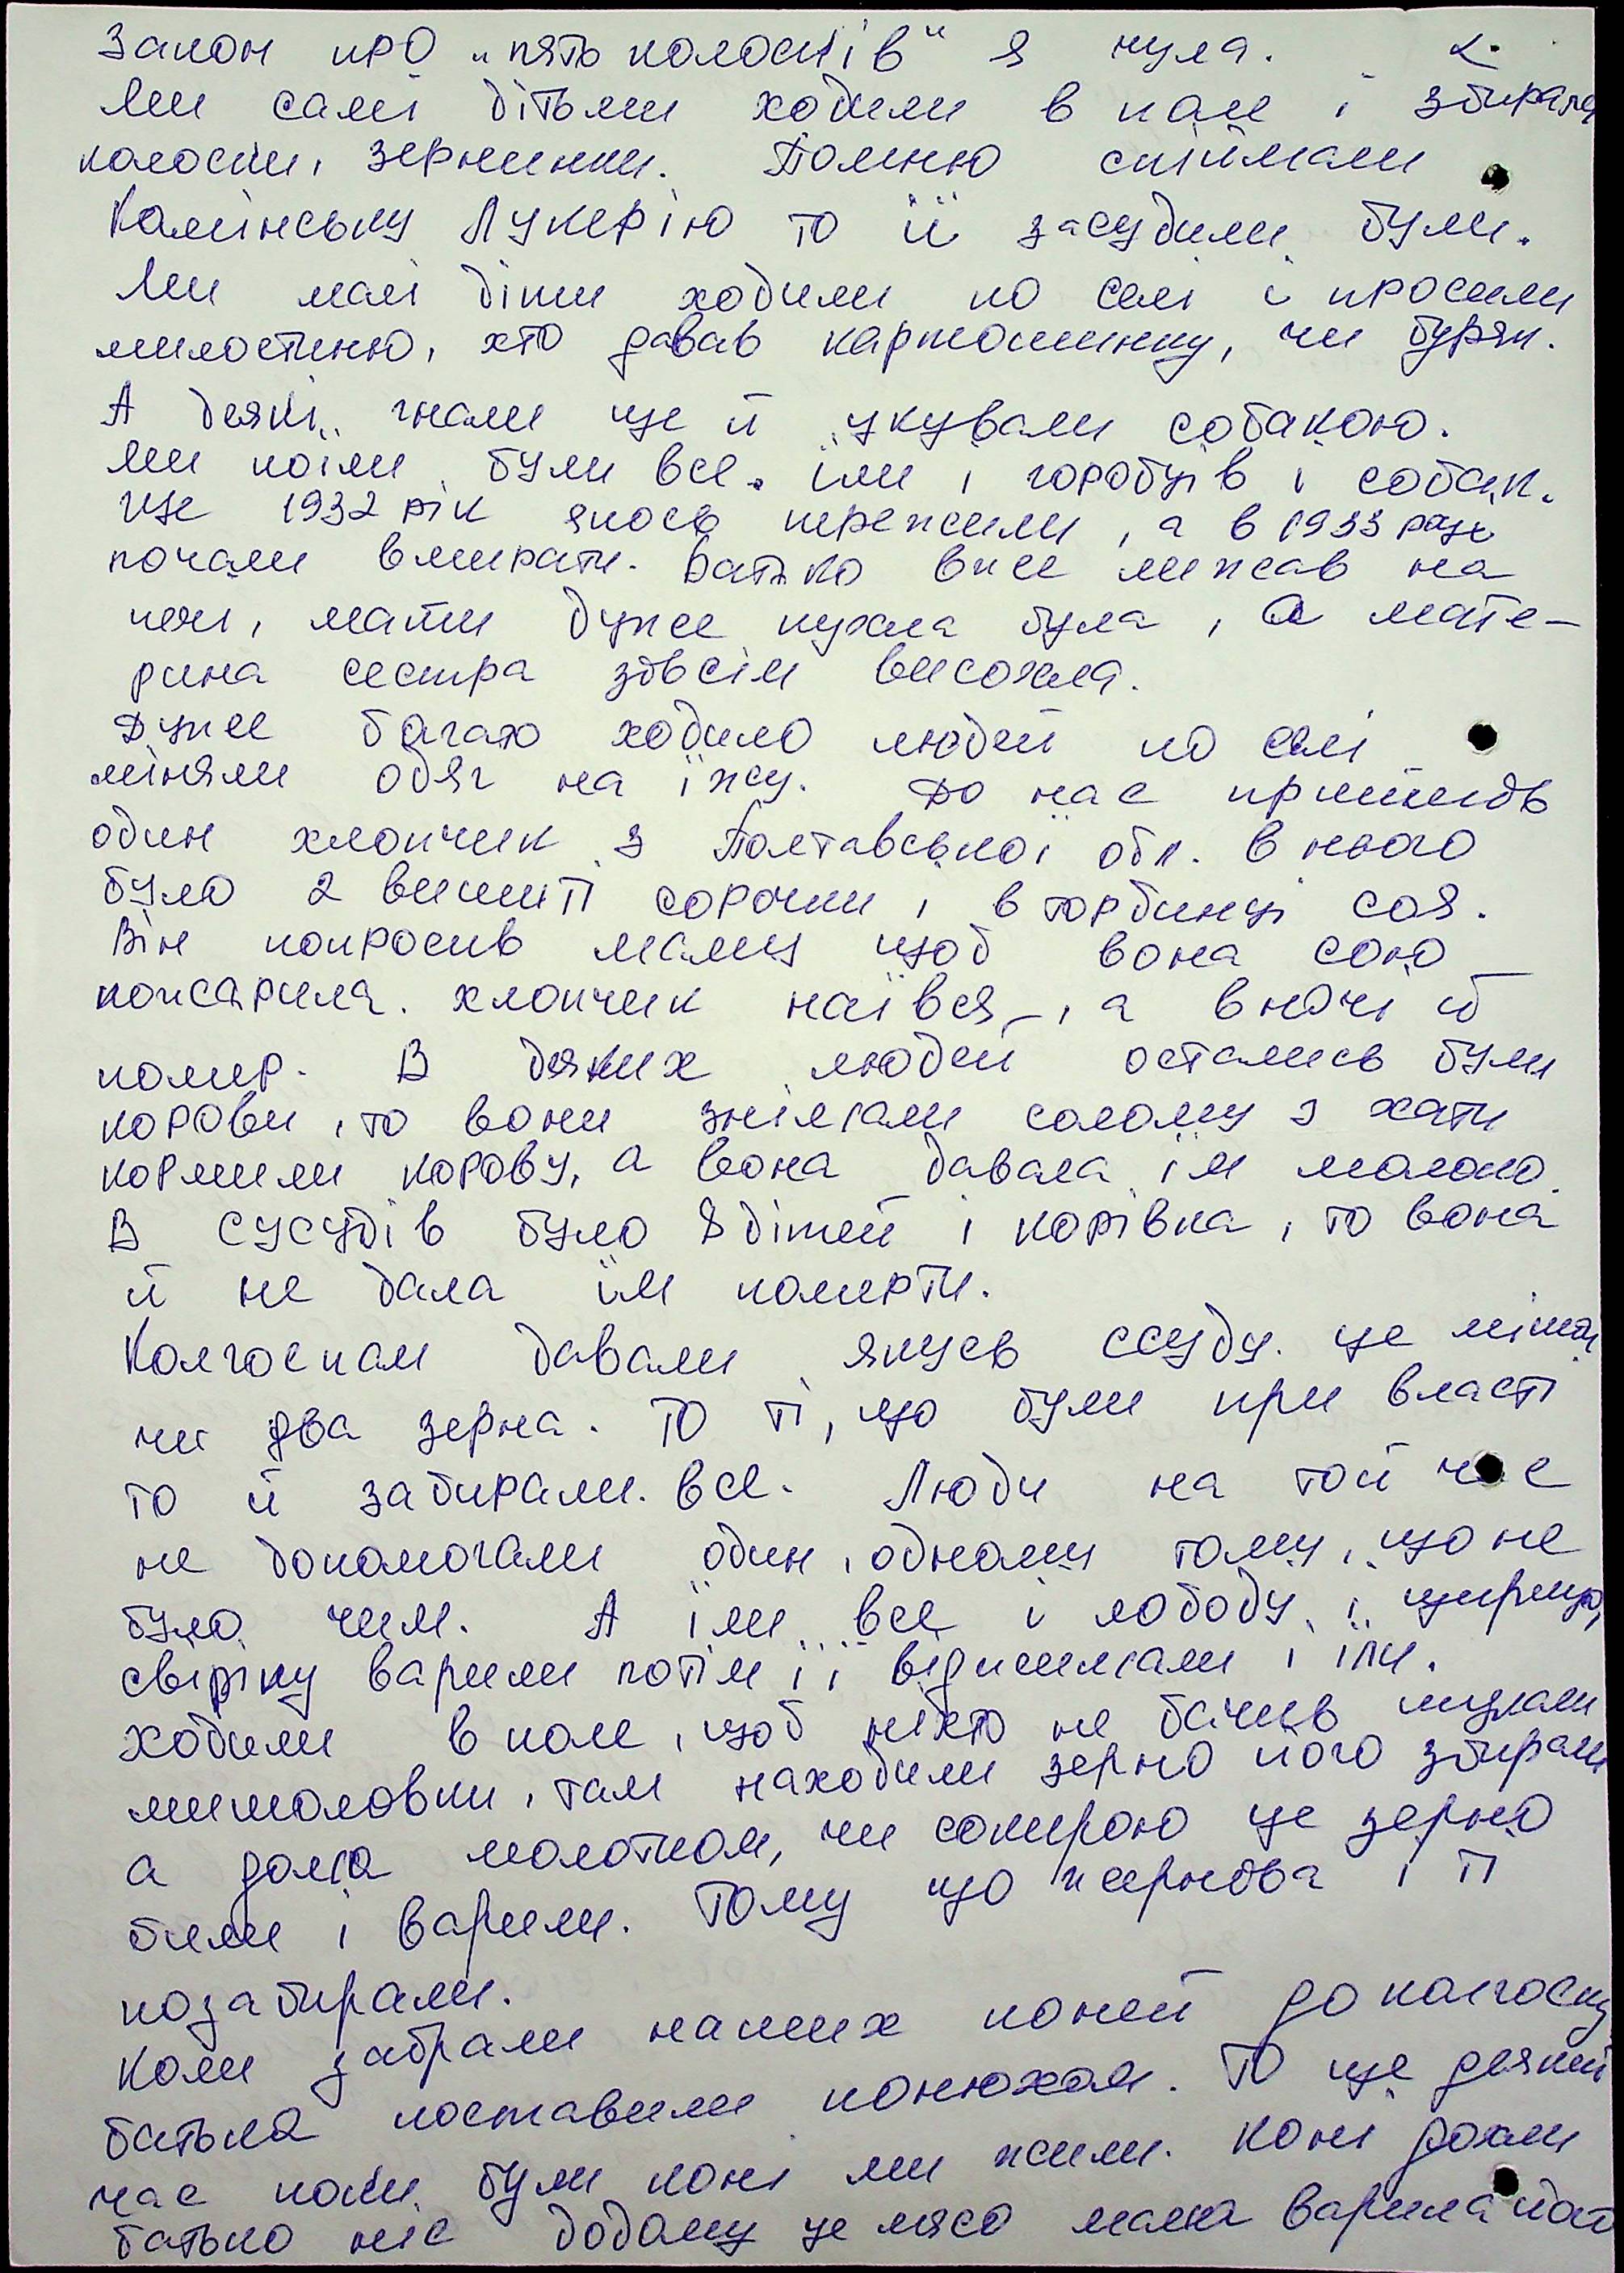 Закон про „пять колосків" я чула. 2.
Ми самі дітьми ходили в поле і збирали
колоски, зернинки. Помню спіймали
Камінську Лукерію то її засудили були.
Ми малі діти ходили по селі і просили
милостиню, хто давав картошинку, чи буряк.
А деякі гнали ще й цкували собакою.
Ми поїли були все. їли і горобців і собак.
Ще 1932 рік якось пережили, а в 1933 році
почали вмирати. Батько вже лижав на
печі, мати дуже пухла була, а мате-
рина сестра зовсім висохла.
Дуже багато ходило людей по селі
міняли одяг на їжу. До нас прийшов
один хлопчик з Полтавської обл. в нього
було 2 вишиті сорочки, в торбинці соя.
Він попросив маму щоб вона сою
пожарила. хлопчик наївся, а вночі й
помер. В деяких людей остались були
корови, то вони знімали солому з хати
кормили корову, а вона давала їм молоко.
В сусудів було 8 дітей і корівка, то вона
й не дала їм померти.
Колгоспам давали якусь ссуду. це мішок
чи два зерна. То ті, що були при власті
то й забирали все. Люди на той час
не допомогали один, одному тому, що не
було чим. А їли все і лободу, і щирицю,
свіріпу варили потім її віджимали і їли.
ходили в поле, щоб ніхто не бачив шукали
мишоловки, там находили зерно його збирали
а дома молотком, чи сокирою це зерно
били і варили. Тому що жернова і ті
позабирали.
Коли забрали наших коней до колгоспу
батька поставили конюхом. То ще деякий
час поки були коні ми жили. Коні дохли
батько ніс додому це мясо мама варила його